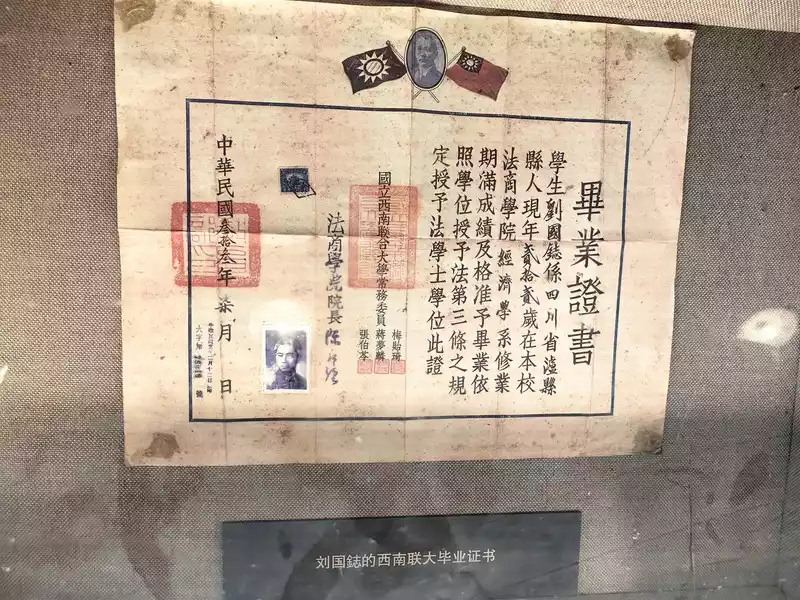 畢業證書
學生劉國鋕係四川省瀘縣
縣人現年貳拾貳歲在本校
法商學院經濟學系修業
期滿成績及格准予畢業依
照學位授予法第三條之規
定授予法學士學位此證
國立西南聯合大學常務委員
梅貽琦
蔣夢麟
張伯苓
法商學院院長
中華民國叁拾叁年柒月 日
刘国鋕的西南联大毕业证书